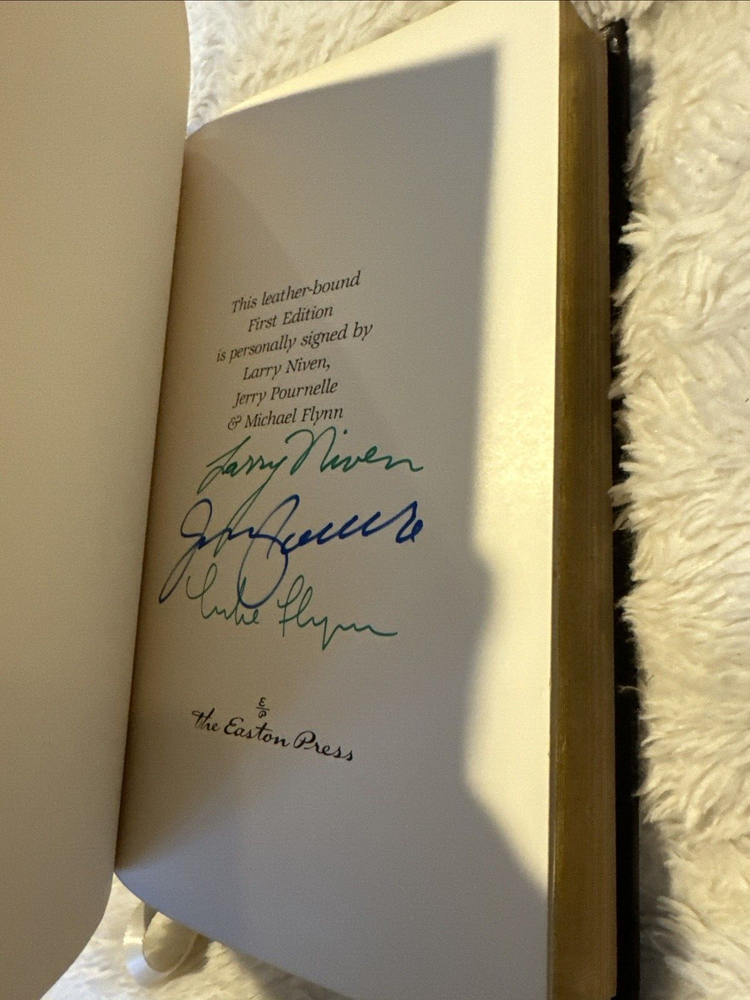 This leather-bound
First Edition
is personally signed by
Larry Niven,
Jerry Pournelle
& Michael Flynn
Larry Niven
Jerry Pournelle
Mike Flynn
The Easton Press